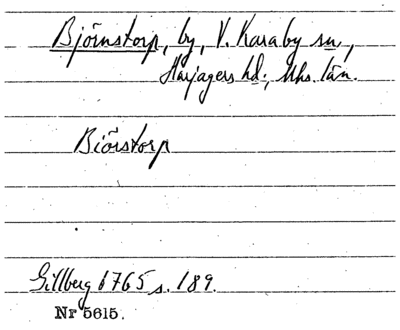 Björnstorp, by, V. Karaby sn,
Harjagers hd., Mhs. län.
Biörstorp
Gillberg 1765 s. 189.
Nr 5615.